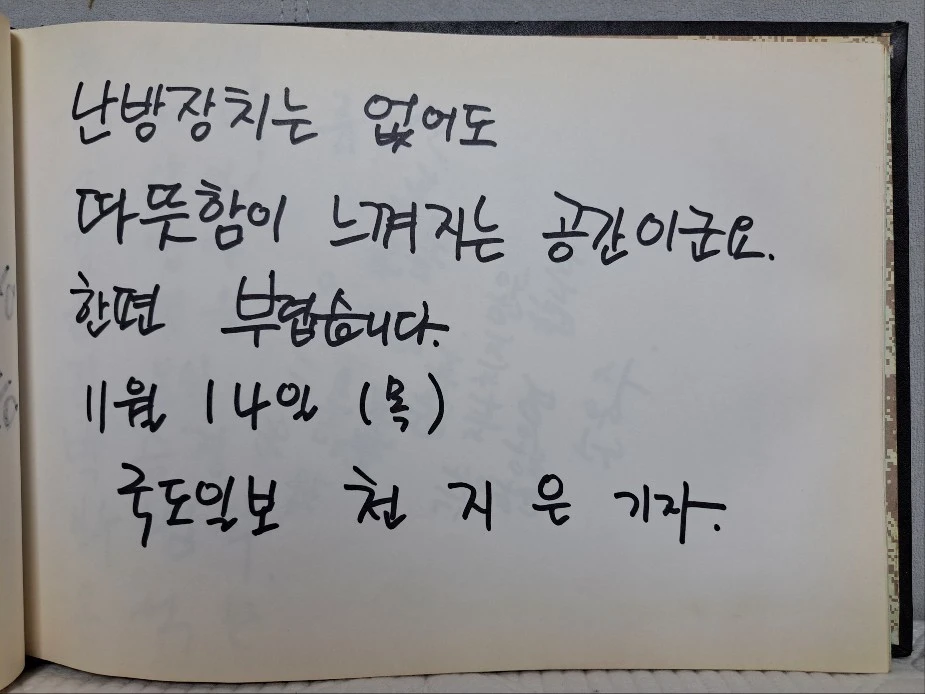 난방장치는 없어도
따뜻함이 느껴지는 공간이군요.
한편 부럽습니다.
11월 14일 (목)
국도일보 천지은 기자.